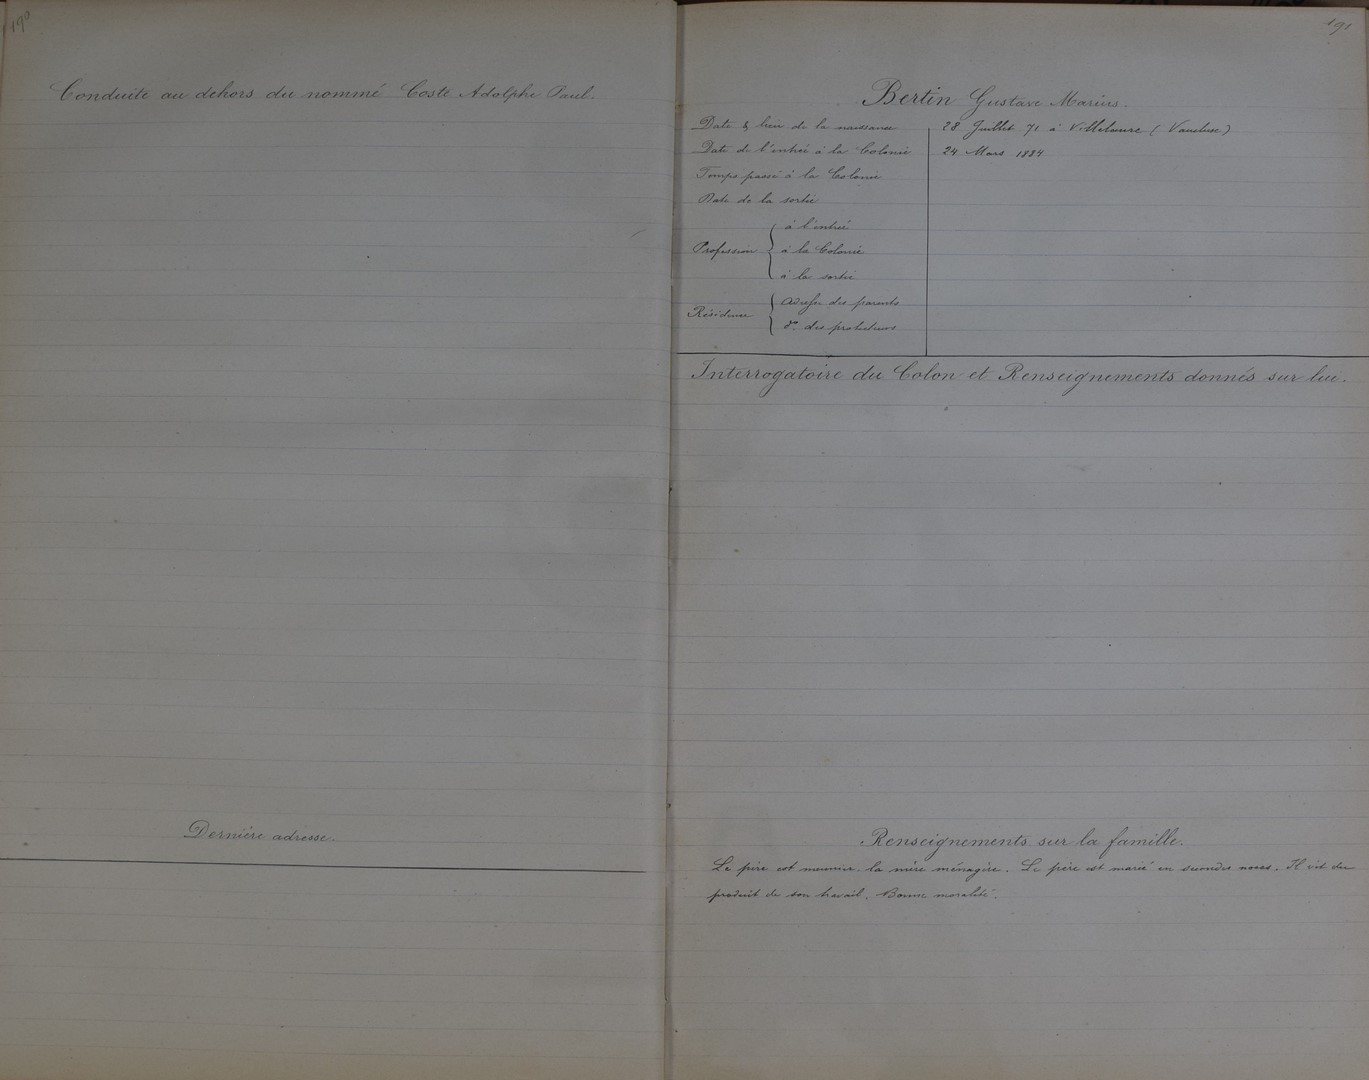 190
Conduite au dehors du nommé Coste Adolphe Paul.
Dernière adresse.
191
Bertin Gustave Marius.
Date & lieu de la naissance 28 Juillet 71 à Villelaure (Vaucluse)
Date de l'entrée à la Colonie 24 Mars 1884
Temps passé à la Colonie
Date de la sortie
Profession
à l'entrée
à la Colonie
à la sortie
Résidence
adresse des parents
do. des protecteurs
Interrogatoire du Colon et Renseignements donnés sur lui.
Renseignements sur la famille.
Le père est meunier, la mère ménagère. Le père est marié en secondes noces. Il vit du
produit de son travail. Bonne moralité.